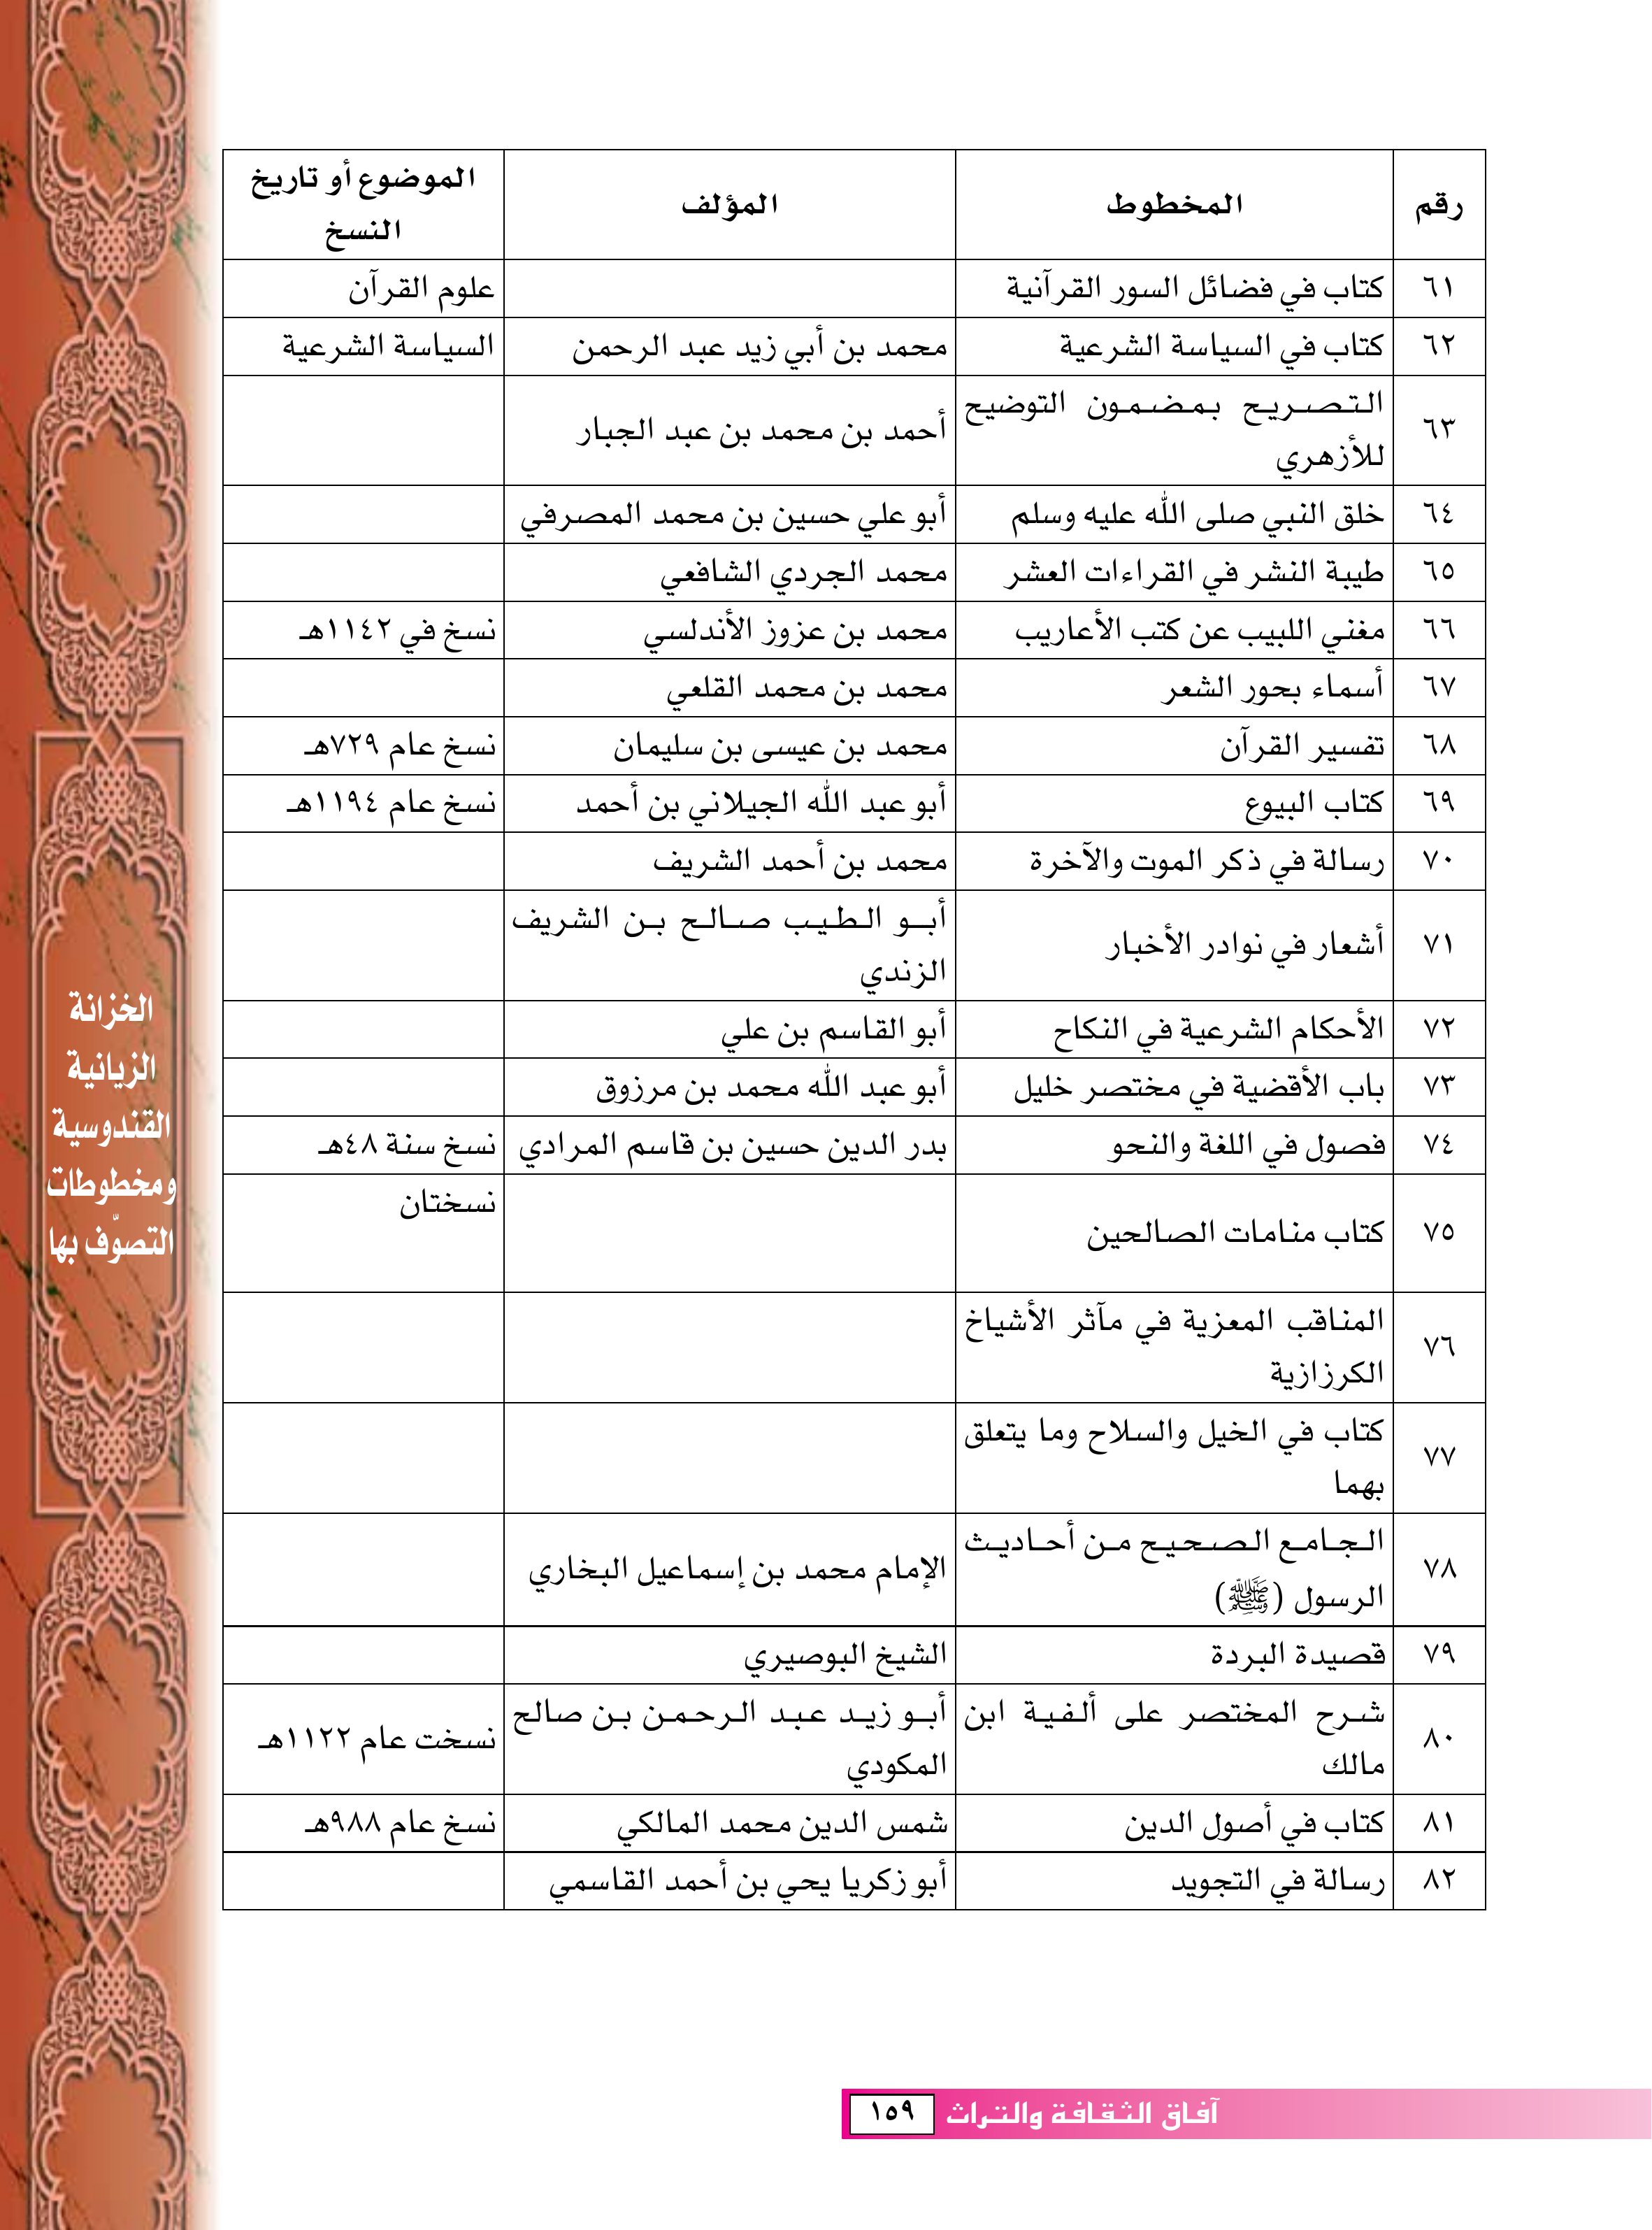 رقم المخطوط المؤلف الموضوع أو تاريخ
النسخ
٦١ كتاب في فضائل السور القرآنية علوم القرآن
٦٢ كتاب في السياسة الشرعية محمد بن أبي زيد عبد الرحمن السياسة الشرعية
٦٣ التصريح بمضمون التوضيح أحمد بن محمد بن عبد الجبار
للأزهري
٦٤ خلق النبي صلى الله عليه وسلم أبو علي حسين بن محمد المصرفي
٦٥ طيبة النشر في القراءات العشر محمد الجردي الشافعي
٦٦ مغني اللبيب عن كتب الأعاريب محمد بن عزوز الأندلسي نسخ في ١١٤٢هـ
٦٧ أسماء بحور الشعر محمد بن محمد القلعي
٦٨ تفسير القرآن محمد بن عيسى بن سليمان نسخ عام ٧٢٩هـ
٦٩ كتاب البيوع أبو عبد الله الجيلاني بن أحمد نسخ عام ١١٩٤هـ
٧٠ رسالة في ذكر الموت والآخرة محمد بن أحمد الشريف
٧١ أشعار في نوادر الأخبار أبو الطيب صالح بن الشريف
الزندي
٧٢ الأحكام الشرعية في النكاح أبو القاسم بن علي
٧٣ باب الأقضية في مختصر خليل أبو عبد الله محمد بن مرزوق
٧٤ فصول في اللغة والنحو بدر الدين حسين بن قاسم المرادي نسخ سنة ٤٨هـ
٧٥ كتاب منامات الصالحين نسختان
٧٦ المناقب المعزية في مآثر الأشياخ
الكرزازية
٧٧ كتاب في الخيل والسلاح وما يتعلق
بهما
٧٨ الجامع الصحيح من أحاديث الإمام محمد بن إسماعيل البخاري
الرسول (ﷺ)
٧٩ قصيدة البردة الشيخ البوصيري
٨٠ شرح المختصر على ألفية ابن أبو زيد عبد الرحمن بن صالح نسخت عام ١١٢٢هـ
مالك المكودي
٨١ كتاب في أصول الدين شمس الدين محمد المالكي نسخ عام ٩٨٨هـ
٨٢ رسالة في التجويد أبو زكريا يحي بن أحمد القاسمي
الخزانة
الزيانية
القندوسية
ومخطوطات
التصوّف بها
آفاق الثقافة والتراث ١٥٩